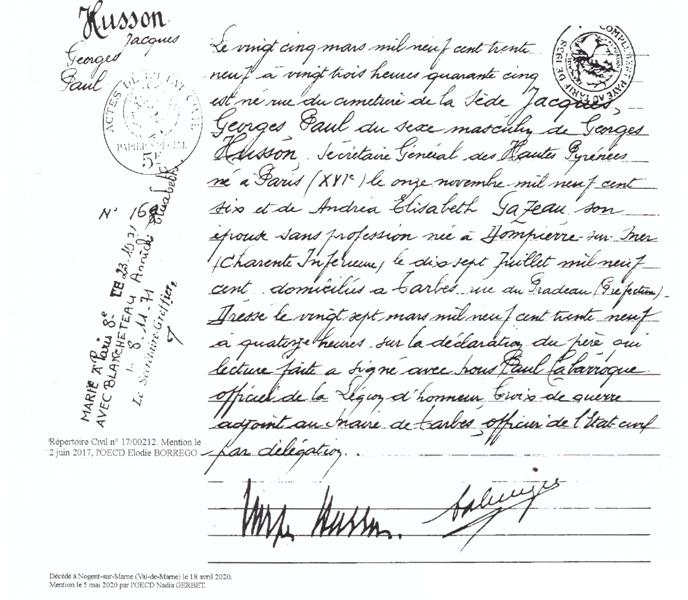 Husson
Jacques
Georges
Paul
ACTES DE L'ETAT CIVIL
PAPIER SPECIAL
5F
N° 169
MARIÉ À Paris 8e LE 23.10.71
AVEC BLANCHETEAU Annick Elisabeth
8.11.71
Le Secrétaire-Greffier
COMPLEMENT PAYE AU TARIF DE 1938
Le vingt cinq mars mil neuf cent trente
neuf à vingt trois heures quarante cinq
est né rue du cimetière de la Sède Jacques,
Georges Paul du sexe masculin de Georges
Husson, Secrétaire Général des Hautes Pyrénées
né à Paris (XVIe) le onze novembre mil neuf cent
six et de Andréa Elisabeth Gazeau son
épouse sans profession née à Dompierre-sur-Mer
(Charente Inférieure) le dix sept Juillet mil neuf
cent domiciliés à Tarbes rue du Pradeau (Préfecture).
Dressé le vingt sept mars mil neuf cent trente neuf
à quatorze heures sur la déclaration du père qui
lecture faite a signé avec nous Paul Labarroque
officier de la Légion d'honneur Croix de guerre
adjoint au Maire de Tarbes, officier de l'Etat civil
par délégation.
Husson
Répertoire Civil n° 17/00212. Mention le
2 juin 2017, l'OECD Elodie BORREGO
Décédé à Nogent-sur-Marne (Val-de-Marne) le 18 avril 2020.
Mention le 5 mai 2020 par l'OECD Nadia GERBET.